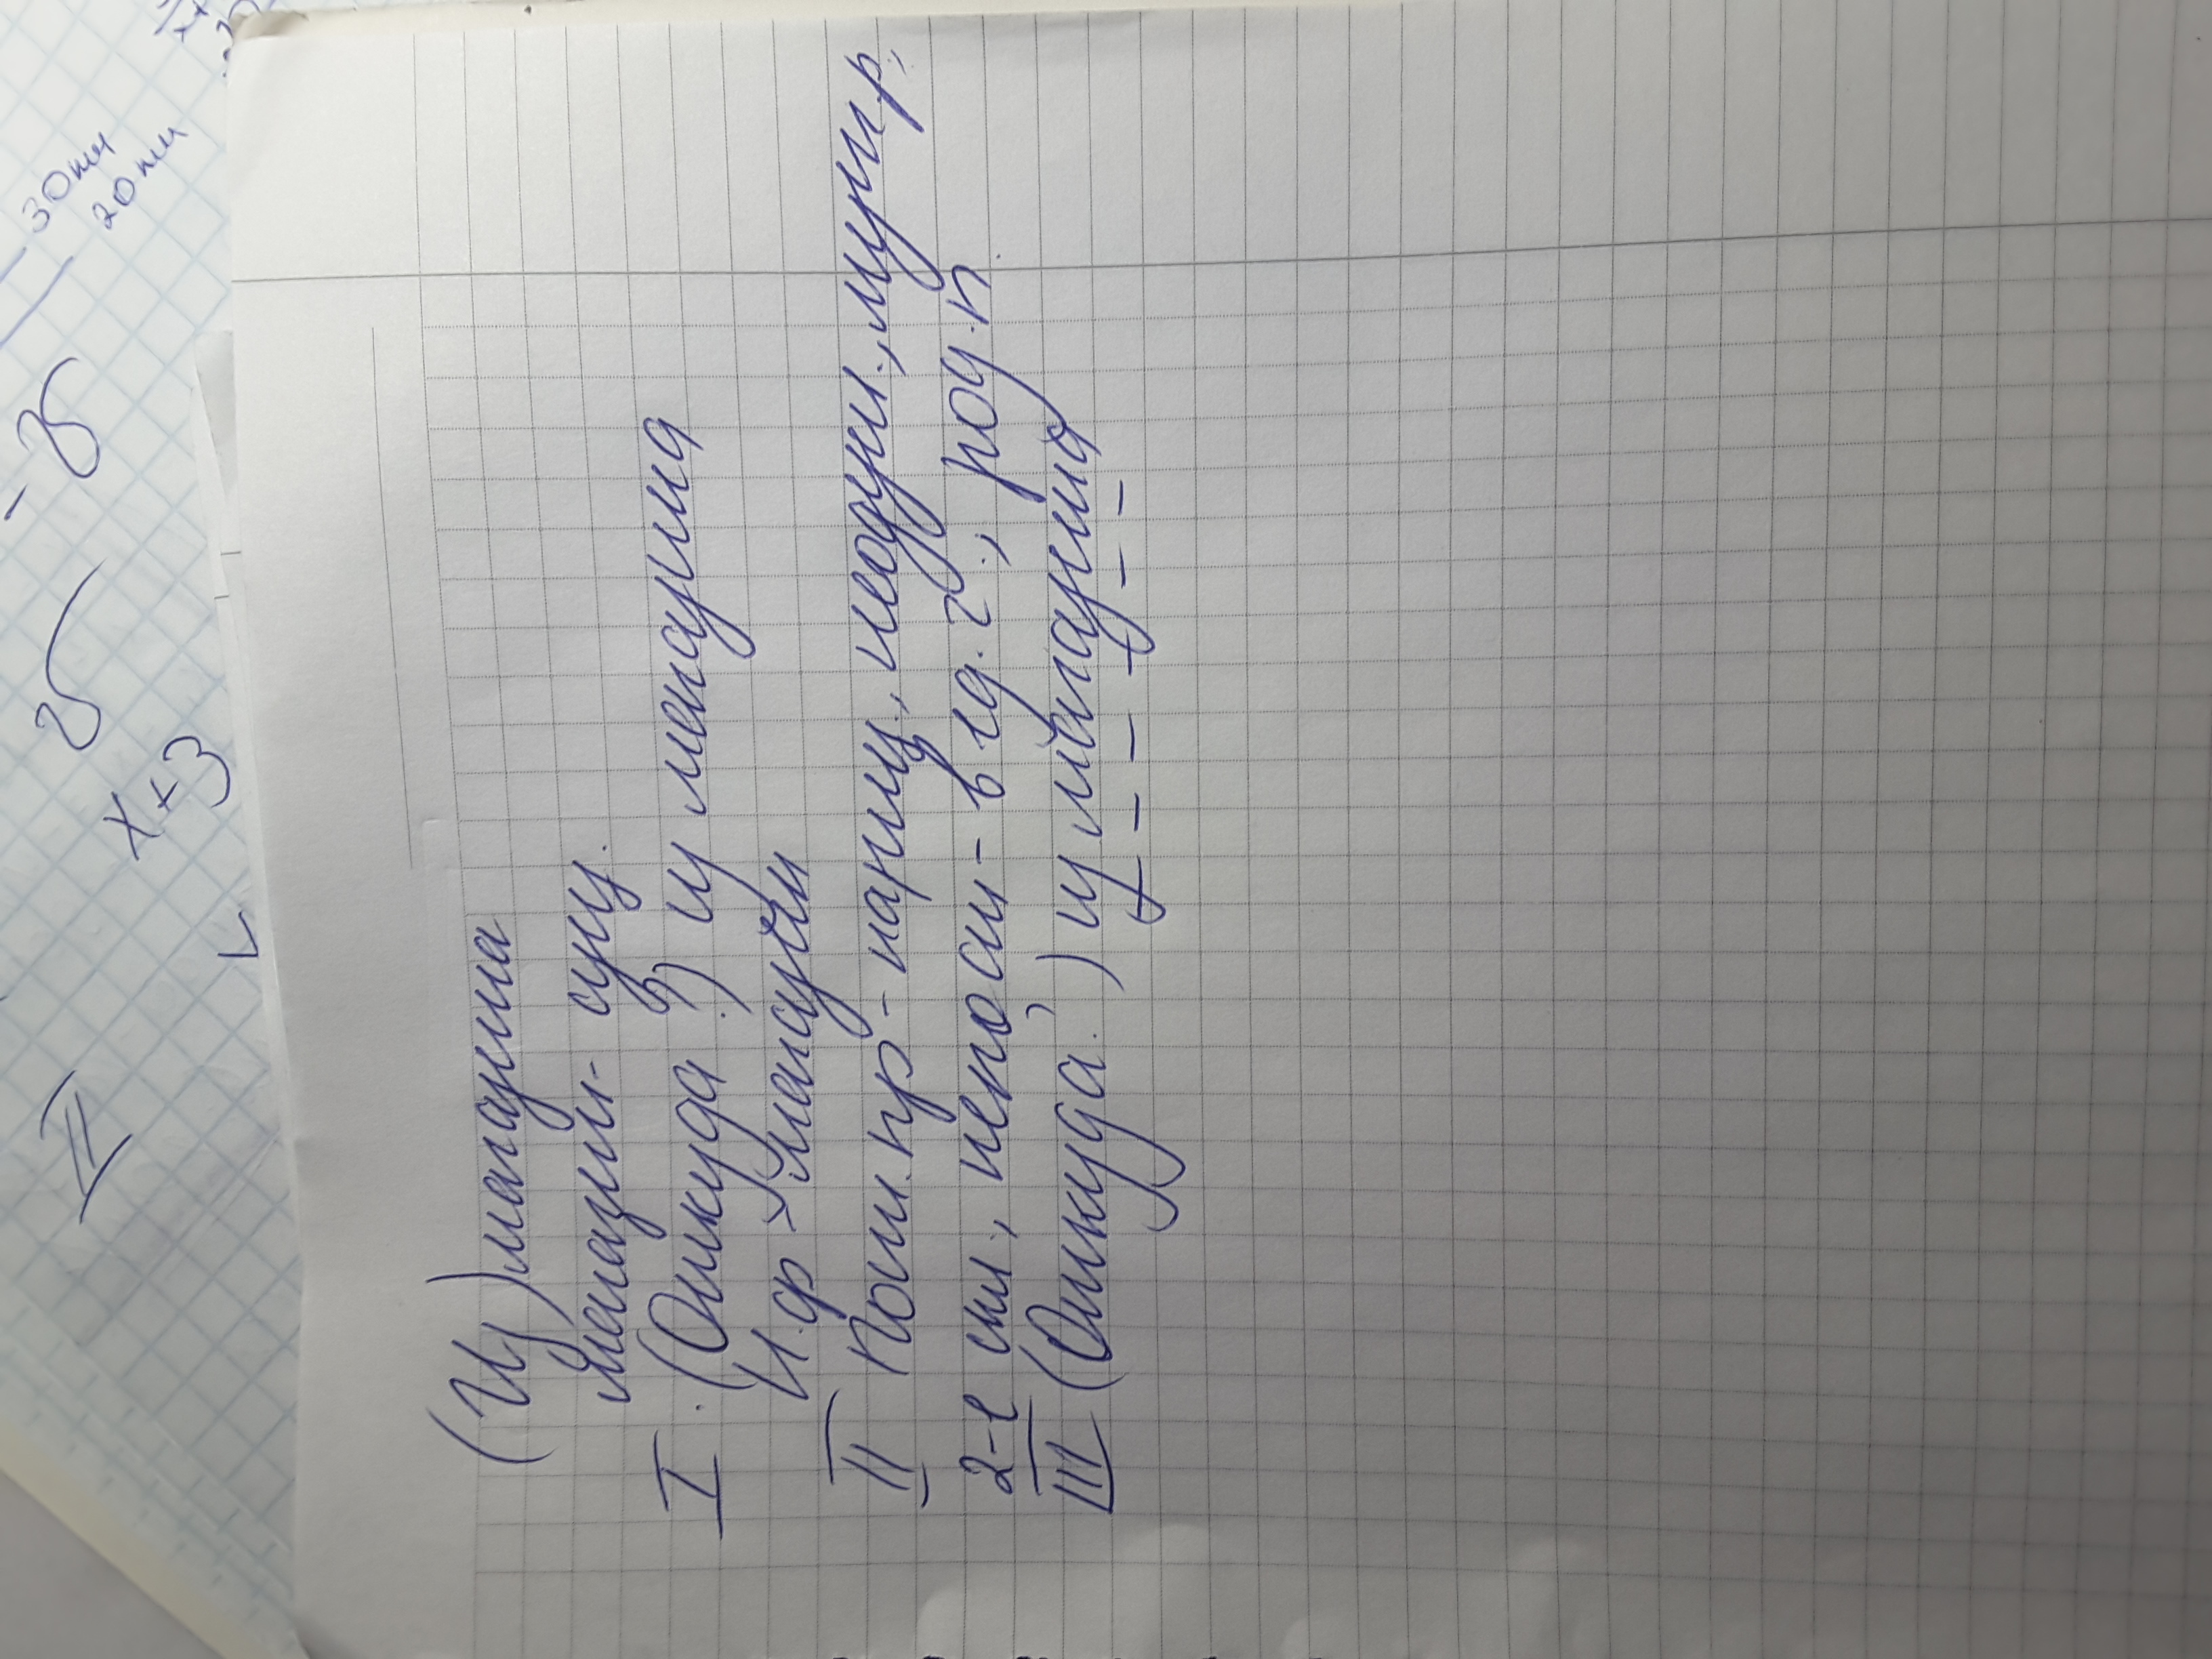 (Из) магазина
магазин - сущ.
I. (Откуда?) из магазина
Н.ф магазин
II Пост.пр - нариц., неодуш., муж.р.,
2-е скл., непост - в ед. ч., род.п.
III (Откуда?) из магазина
II
x+3
30 км
20 км